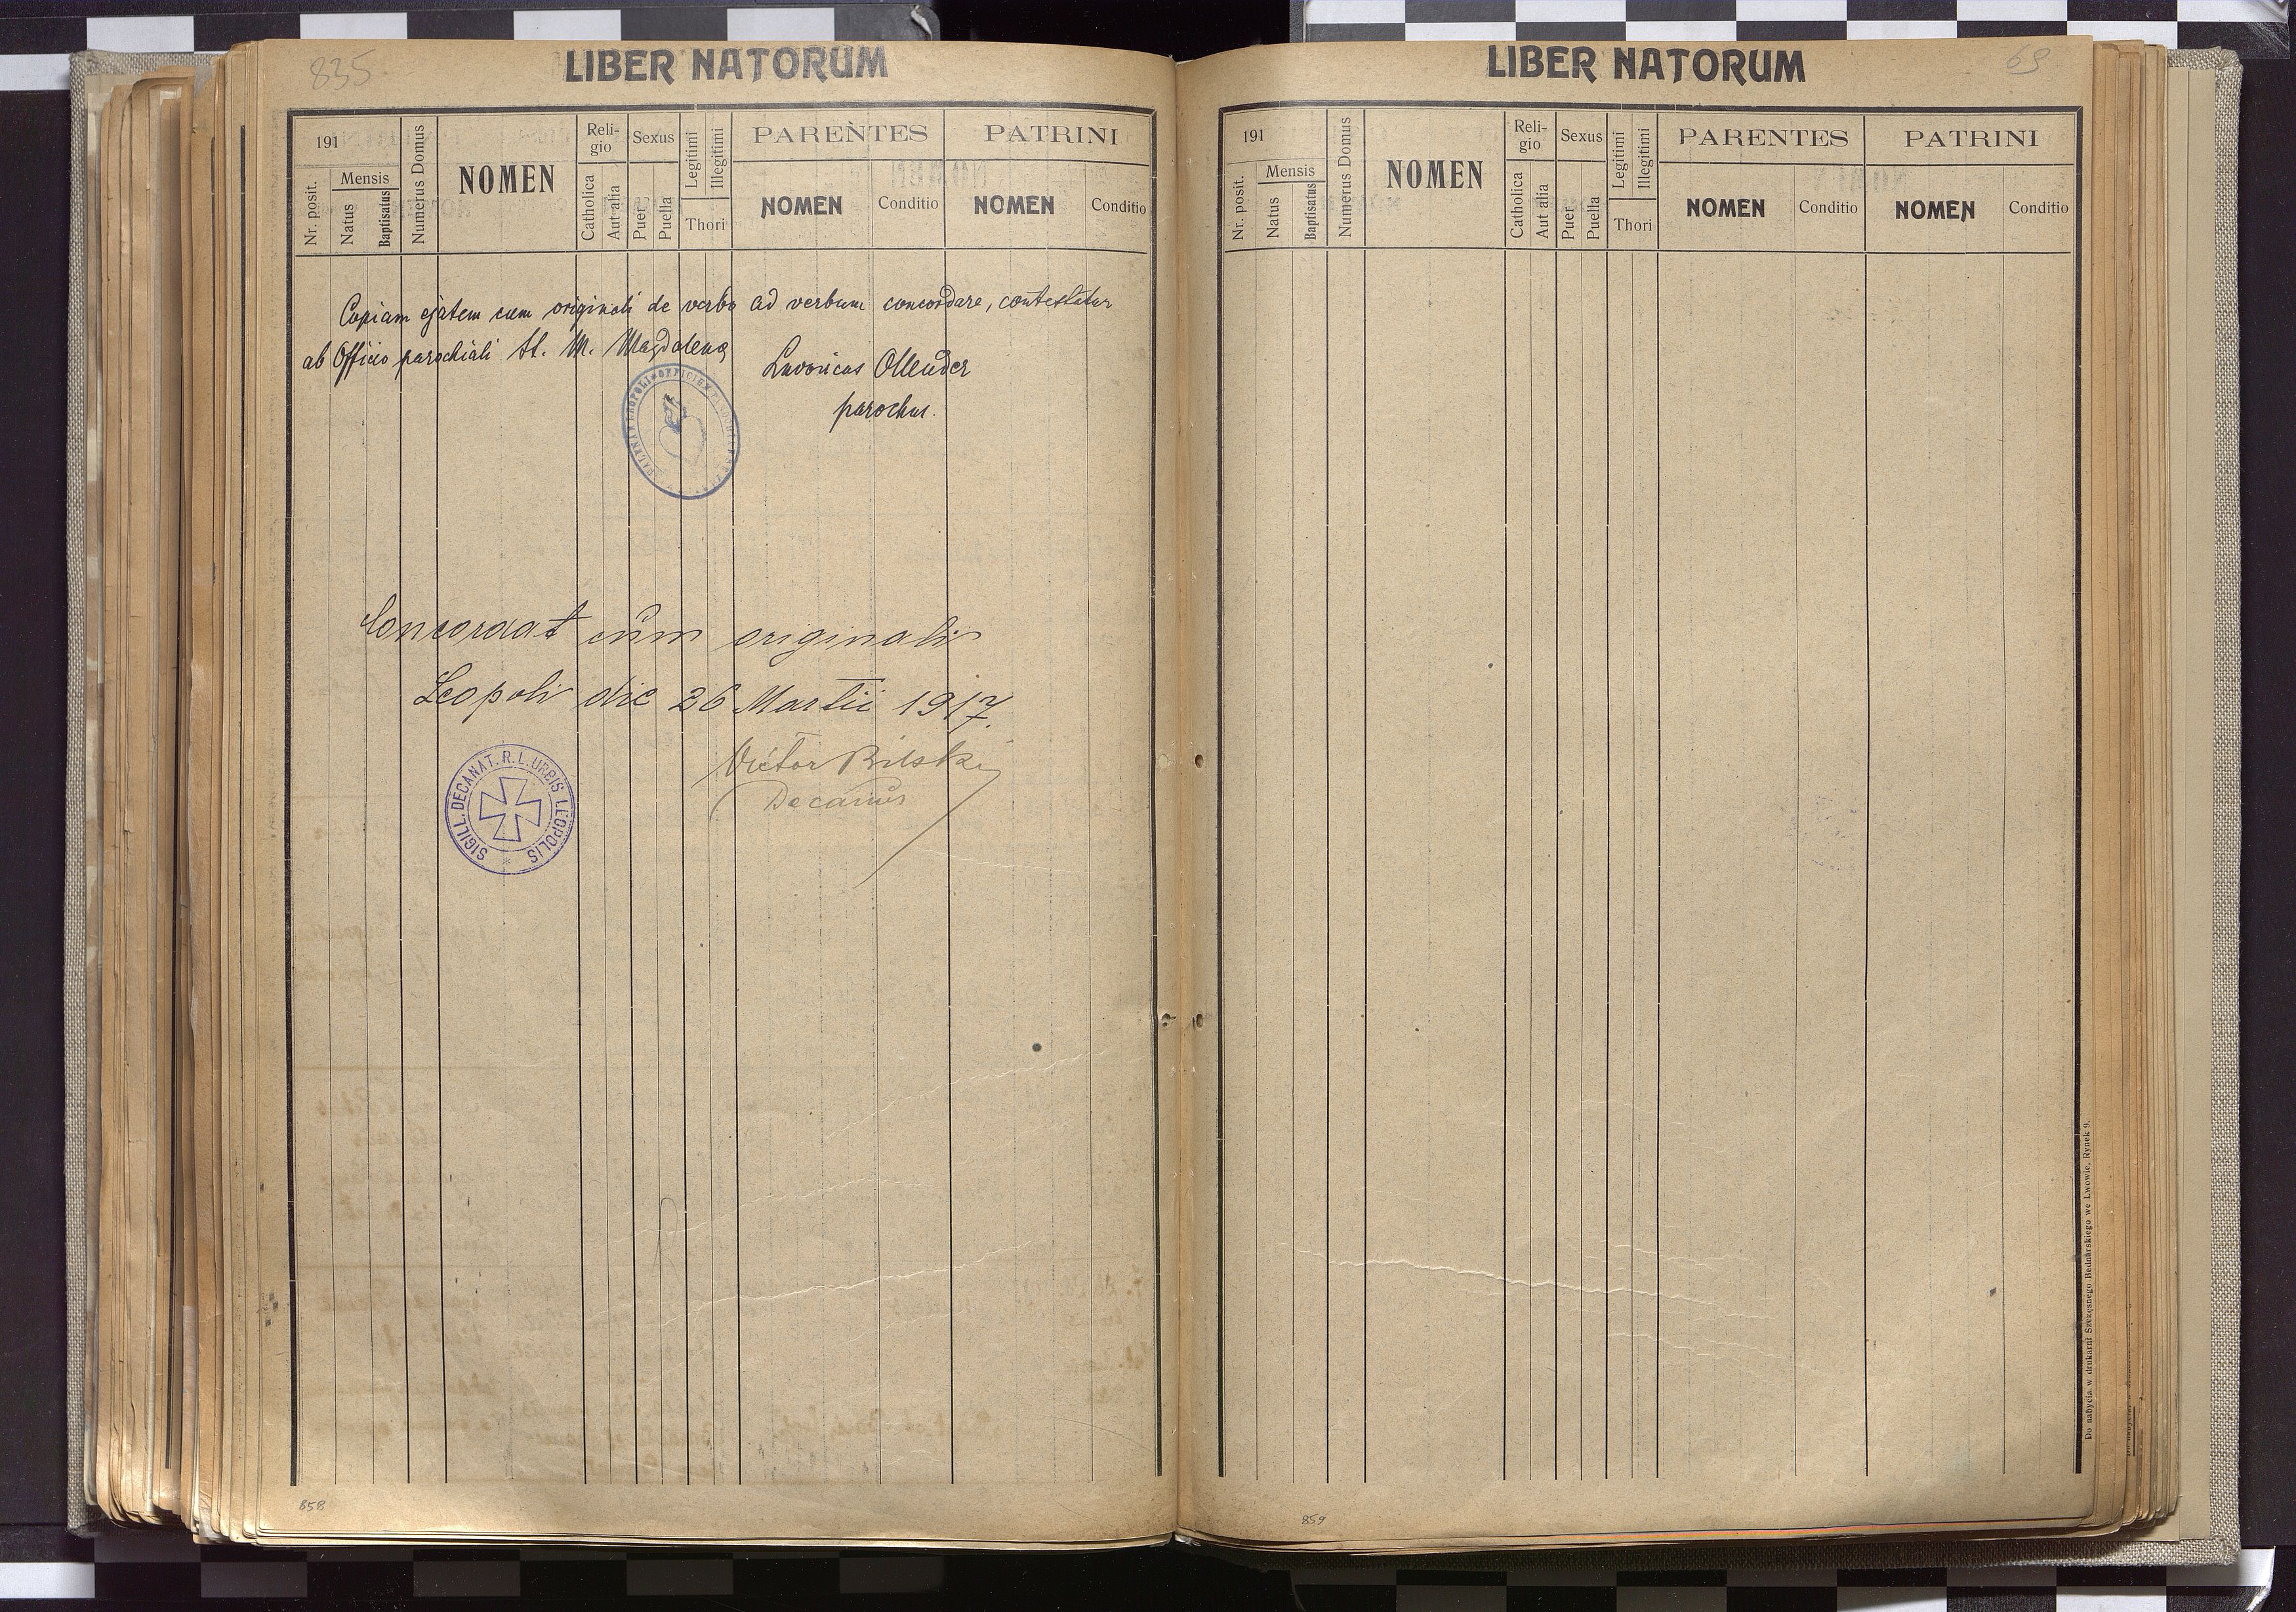 835
LIBER NATORUM
191
Nr. posit.
Mensis
Natus
Baptisatus
Numerus Domus
NOMEN
Reli-
gio
Catholica
Aut alia
Sexus
Puer
Puella
Legitimi
Illegitimi
Thori
PARENTES
NOMEN
Conditio
PATRINI
NOMEN
Conditio
Copiam ejatem cum originali de verbo ad verbum concordare, contestatur
ab Officio parochiali St. M. Magdalena
Ollender
parochus.
Concordat cum originali
Leopoli die 26 Martii 1917.
Victor Bilski
Decanus
SIGILL. DECANAT. R. L. URBIS LEOPOLIS
858
69
LIBER NATORUM
191
Nr. posit.
Mensis
Natus
Baptisatus
Numerus Domus
NOMEN
Reli-
gio
Catholica
Aut alia
Sexus
Puer
Puella
Legitimi
Illegitimi
Thori
PARENTES
NOMEN
Conditio
PATRINI
NOMEN
Conditio
Do nabycia w drukarni Szczęsnego Bednarskiego we Lwowie, Rynek 9.
859